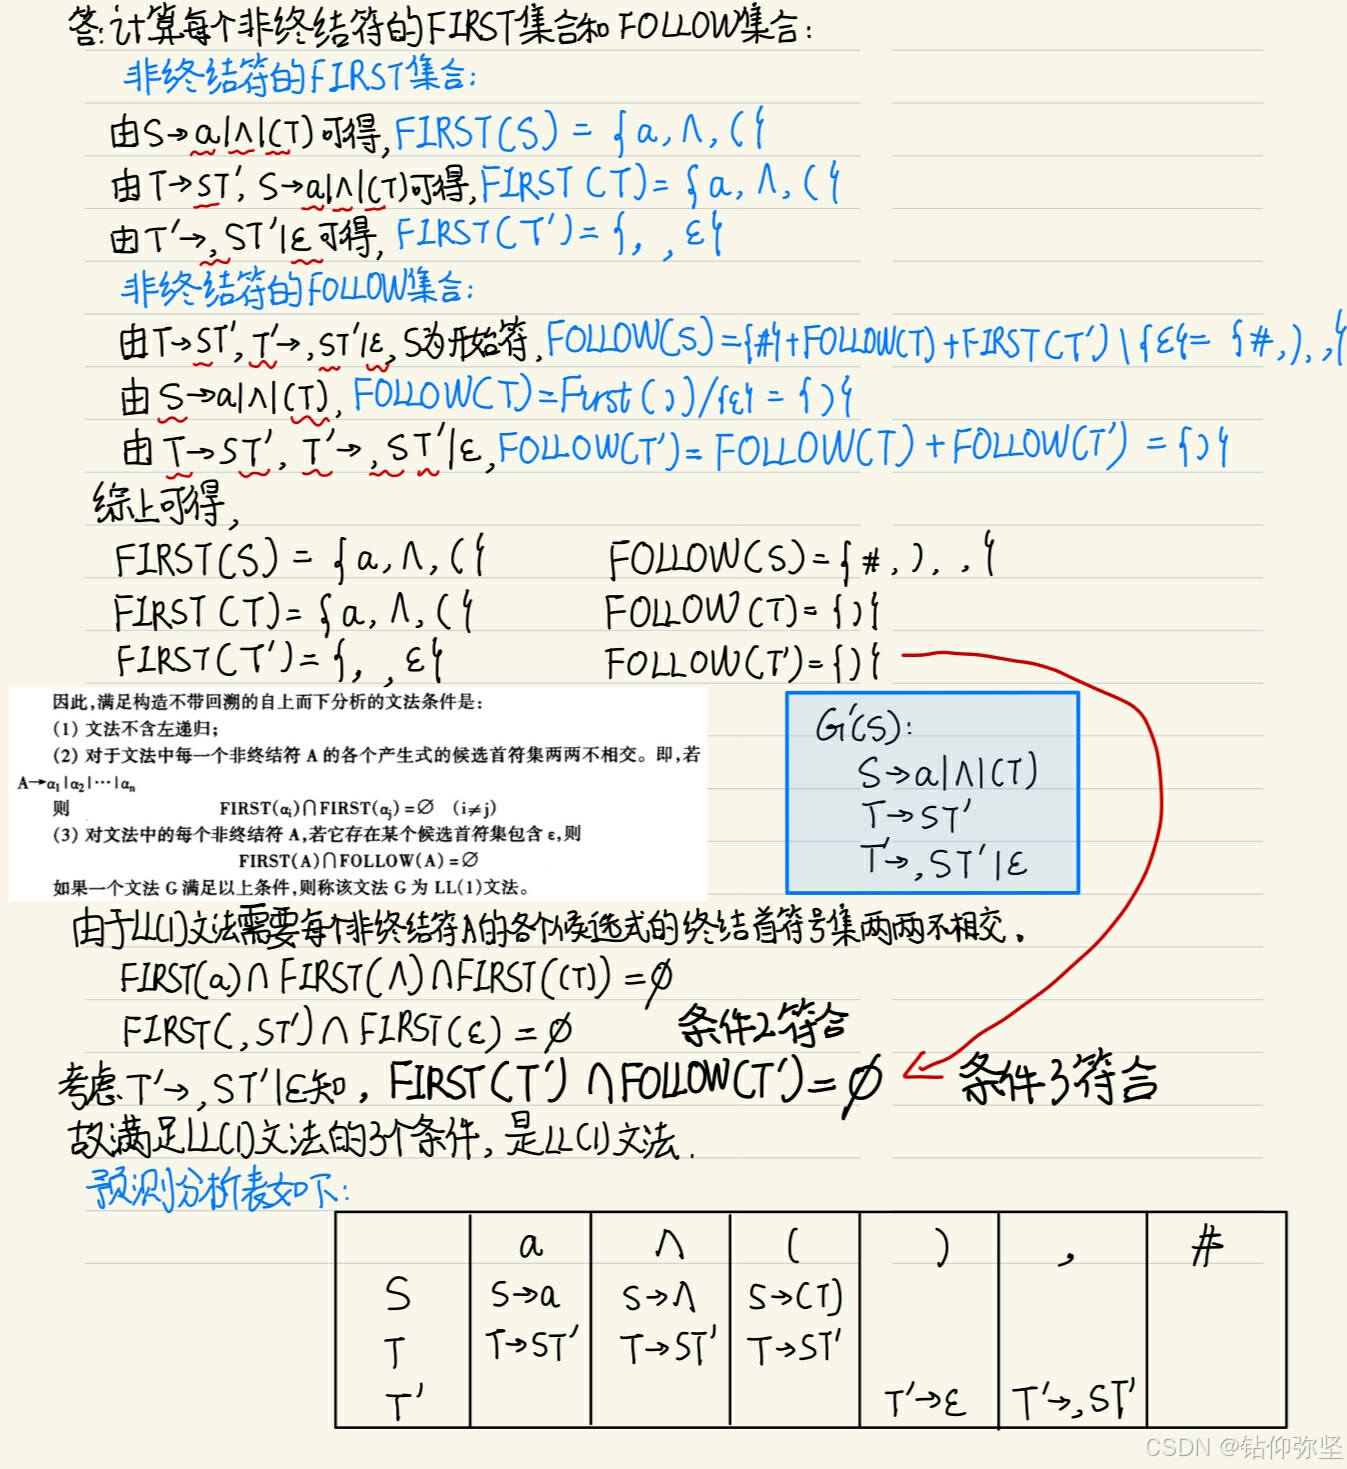 答:计算每个非终结符的FIRST集合和FOLLOW集合:
非终结符的FIRST集合:
由S→a|∧|(T)可得,FIRST(S) = {a,∧,(}
由T→ST′, S→a|∧|(T)可得,FIRST(T)={a,∧,(}
由T′→,ST′|ε可得, FIRST(T′)={, , ε}
非终结符的FOLLOW集合:
由T→ST′, T′→,ST′|ε, S为开始符, FOLLOW(S)={#}+FOLLOW(T)+FIRST(T′)\{ε}= {#,),,}
由S→a|∧|(T), FOLLOW(T)=First())/{ε} = {)}
由T→ST′, T′→,ST′|ε, FOLLOW(T′)= FOLLOW(T)+FOLLOW(T′) = {)}
综上可得,
FIRST(S) = {a,∧,(} FOLLOW(S)={#,),,}
FIRST(T)={a,∧,(} FOLLOW(T)={)}
FIRST(T′)={, , ε} FOLLOW(T′)={)}
因此,满足构造不带回溯的自上而下分析的文法条件是:
(1) 文法不含左递归;
(2) 对于文法中每一个非终结符 A 的各个产生式的候选首符集两两不相交。即,若
A→α₁|α₂|⋯|αₙ
则 FIRST(αᵢ)∩FIRST(αⱼ)=∅ (i≠j)
(3) 对文法中的每个非终结符 A,若它存在某个候选首符集包含 ε,则
FIRST(A)∩FOLLOW(A)=∅
如果一个文法 G 满足以上条件,则称该文法 G 为 LL(1)文法。
G′(S):
S→a|∧|(T)
T→ST′
T′→,ST′|ε
由于LL(1)文法需要每个非终结符A的各个候选式的终结首符号集两两不相交.
FIRST(a)∩FIRST(∧)∩FIRST((T))=∅
FIRST(,ST′)∩FIRST(ε)=∅ 条件2符合
考虑T′→,ST′|ε知, FIRST(T′)∩FOLLOW(T′)=∅ 条件3符合
故满足LL(1)文法的3个条件,是LL(1)文法.
预测分析表如下:
a ∧ ( ) , #
S S→a S→∧ S→(T)
T T→ST′ T→ST′ T→ST′
T′ T′→ε T′→,ST′
CSDN @钻仰弥坚